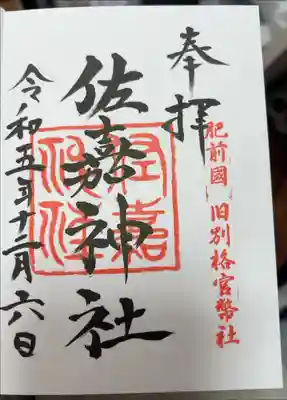 奉拝
肥前國
旧別格官幣社
佐嘉神社
令和五年十二月六日